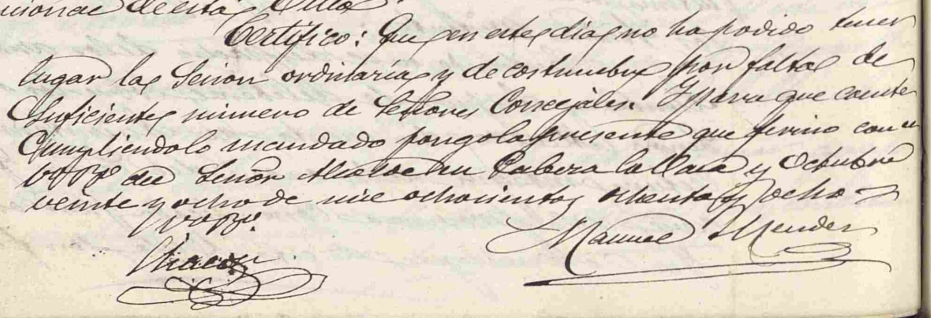 cional de esta Villa.
Certifico: Que en este dia no ha podido tener
lugar la Sesion ordinaria y de costumbre por falta de
suficiente número de Señores Concejales. Y para que conste
Cumpliendo lo mandado pongo la presente que firmo con el
VºBº del Señor Alcalde en Cabeza la Vaca y Octubre
veinte y ocho de mil ochocientos ochenta y ocho=
VºBº.
Chacon
Manuel Mendez